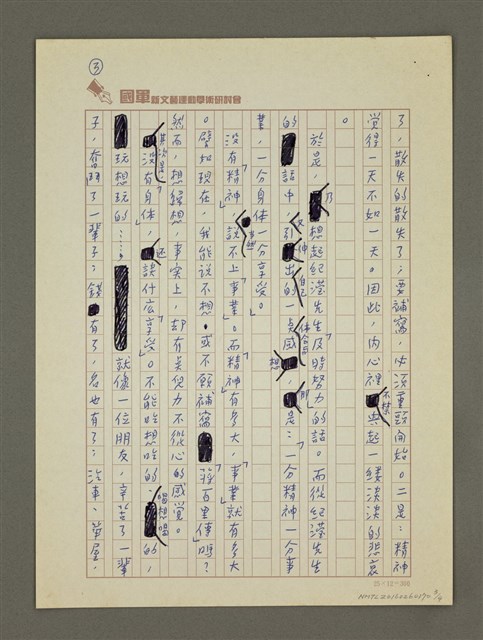 ③
國軍新文藝運動學術研討會
了，散失的散失了；要補寫，必須重頭開始。二是：精神
覺得一天不如一天。因此，內心裡不禁興起一縷淡淡的悲哀
。
於是，乃想起紀瀅先生及時努力的話。而從紀瀅先生
的話中，又引伸出的一點自己體會感想，那是：「一分精神一分事
業，一分身体一分享受。」
「沒有精神」，當然說不上「事業」。而「精神有多大，事業就有多大
。」譬如現在，我能說不想，或不願補寫「穆百里傳」嗎？
然而，想歸想，事實上，却有吳兒力不從心的感覺。
其次是「沒有身体」，还談什么「享受」。不能吃想吃的，喝想喝的，
玩想玩的……就像一位朋友，辛苦了一輩
子，奮鬥了一輩子；錢有了，名也有了；汽車，華屋，
25×12=300
NMTL20160260170 3/4